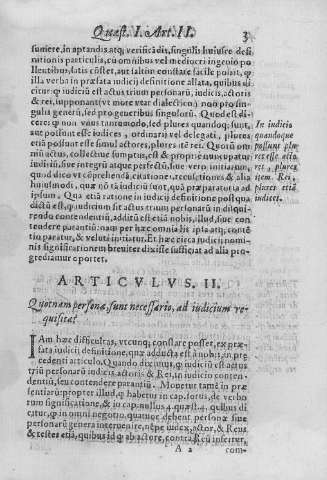 Quæst. I. Art. II. 3
sumere, in aptandis atq; verificādis, singulis huiusce defi-
nitionis particulis, cu omnibus vel mediocri ingenio
pollentibus, latis cōstet, aut saltim constare facile possit, q
illa verba in præfata iudicij definitione allata, quibus di
citur q iudiciū est actus trium personarū, iudicis, actoris
& rei, supponant (vt more vtar dialecticorū) non pro sin-
gulis generū, sed pro generibus singulorū. Quod est di-
cere: q non vnus tantummodo, sed plures quandoq; sunt,
aut possunt esse iudices, ordinarij vel delegati, plures
etiā possunt esse simul actores, plures itē rei. Quòd om
niū actus, collectiuè sumptus, est & propriè nuncupatur
iudiciū, siue integrū atque perfectū, siue verò initiatum,
quod dico vt cōprehendā, citatione, recusationes, & alia
huiusmodi, quæ nō tā iudiciū sunt, quā præparatoria ad
ipsum. Qua etiā ratione in iudicij definitione post qua
dictū est, q iudicium sit actus trium personarū in dijudi-
rendo contendentiū, additū est etiā nobis, illud, siue con-
tendere parantiū: nam per hæc omnia his iplis actū, conté
tio paratur, & veluti initiatur. Et hæc circa iudicij nomi-
nis significationem breuiter dixisse sufficiat ad alia pro-
grediamur oportet.
In iudicio
quandoque
possunt plu
res esse acto
res, plures
item. Rei,
plures etiā
iudices.
ARTICVLVS. II.
Quotnam personæ, sunt necessario, ad iudicium re-
quisitæ?
IAm hæc difficultas, vtcunq; constare posset, ex præ-
fata iudicij definitione, quæ adducta est à nobis, in præ
cedenti articulo. Quando diximus, q iudiciū est actus
triū personarū iudicis, actoris & Rei, in iudicio conten-
dentiū, seu contendere parantiū. Mouetur tamē in præ
sentiarū propter illud, q habetur in cap. forus, de verbo
rum significatione, & in cap. nullus 4. quæst. 4. quibus di
citur, q in omni negotio, quatuor debent personæ siue
personarū genera interuenire, nēpe iudex, actor, & Reus
& testes etiā, quibus id q ab actore, contra Reū inseritur,
A 2 com-